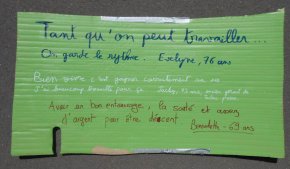 Tant qu'on peut travailler...
On garde le rythme. Evelyne, 76 ans
Bien vivre c'est gagner correctement sa vie
J'ai beaucoup travaillé pour ça Jacky, 73 ans,
Avec un bon entourage, la santé et assez
d'argent pour être décent Bernadette - 69 ans